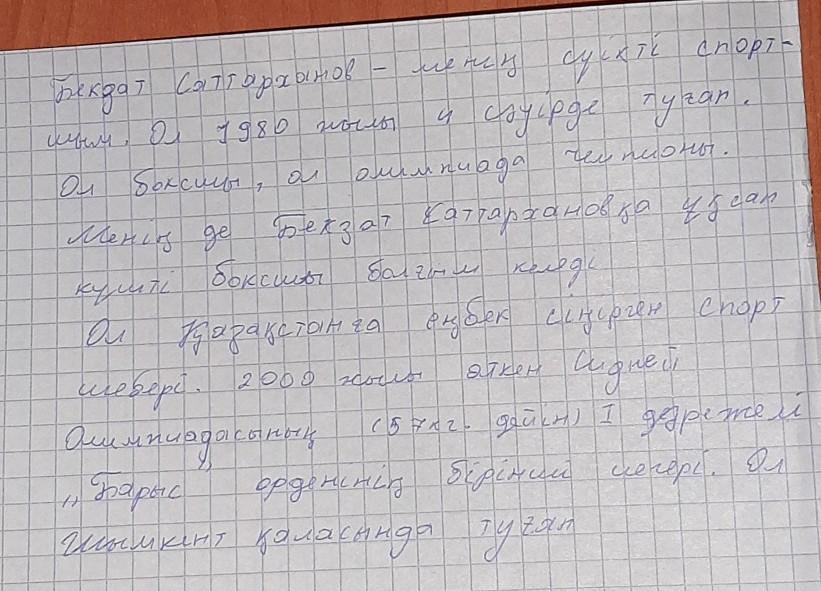 Бекзат Саттарханов – менің сүйікті спорт-
шым. Ол 1980 жылы 4 сәуірде туған.
Ол боксшы, ол олимпиада чемпионы.
Менің де Бекзат Саттархановқа ұқсап
күшті боксшы болғым келеді
Ол Қазақстанға еңбек сіңірген спорт
шебері. 2000 жылы өткен Сидней
Олимпиадасының (57кг. дейін) I дәрежелі
„Барыс" орденінің бірінші иегері. Ол
Шымкент қаласында туған